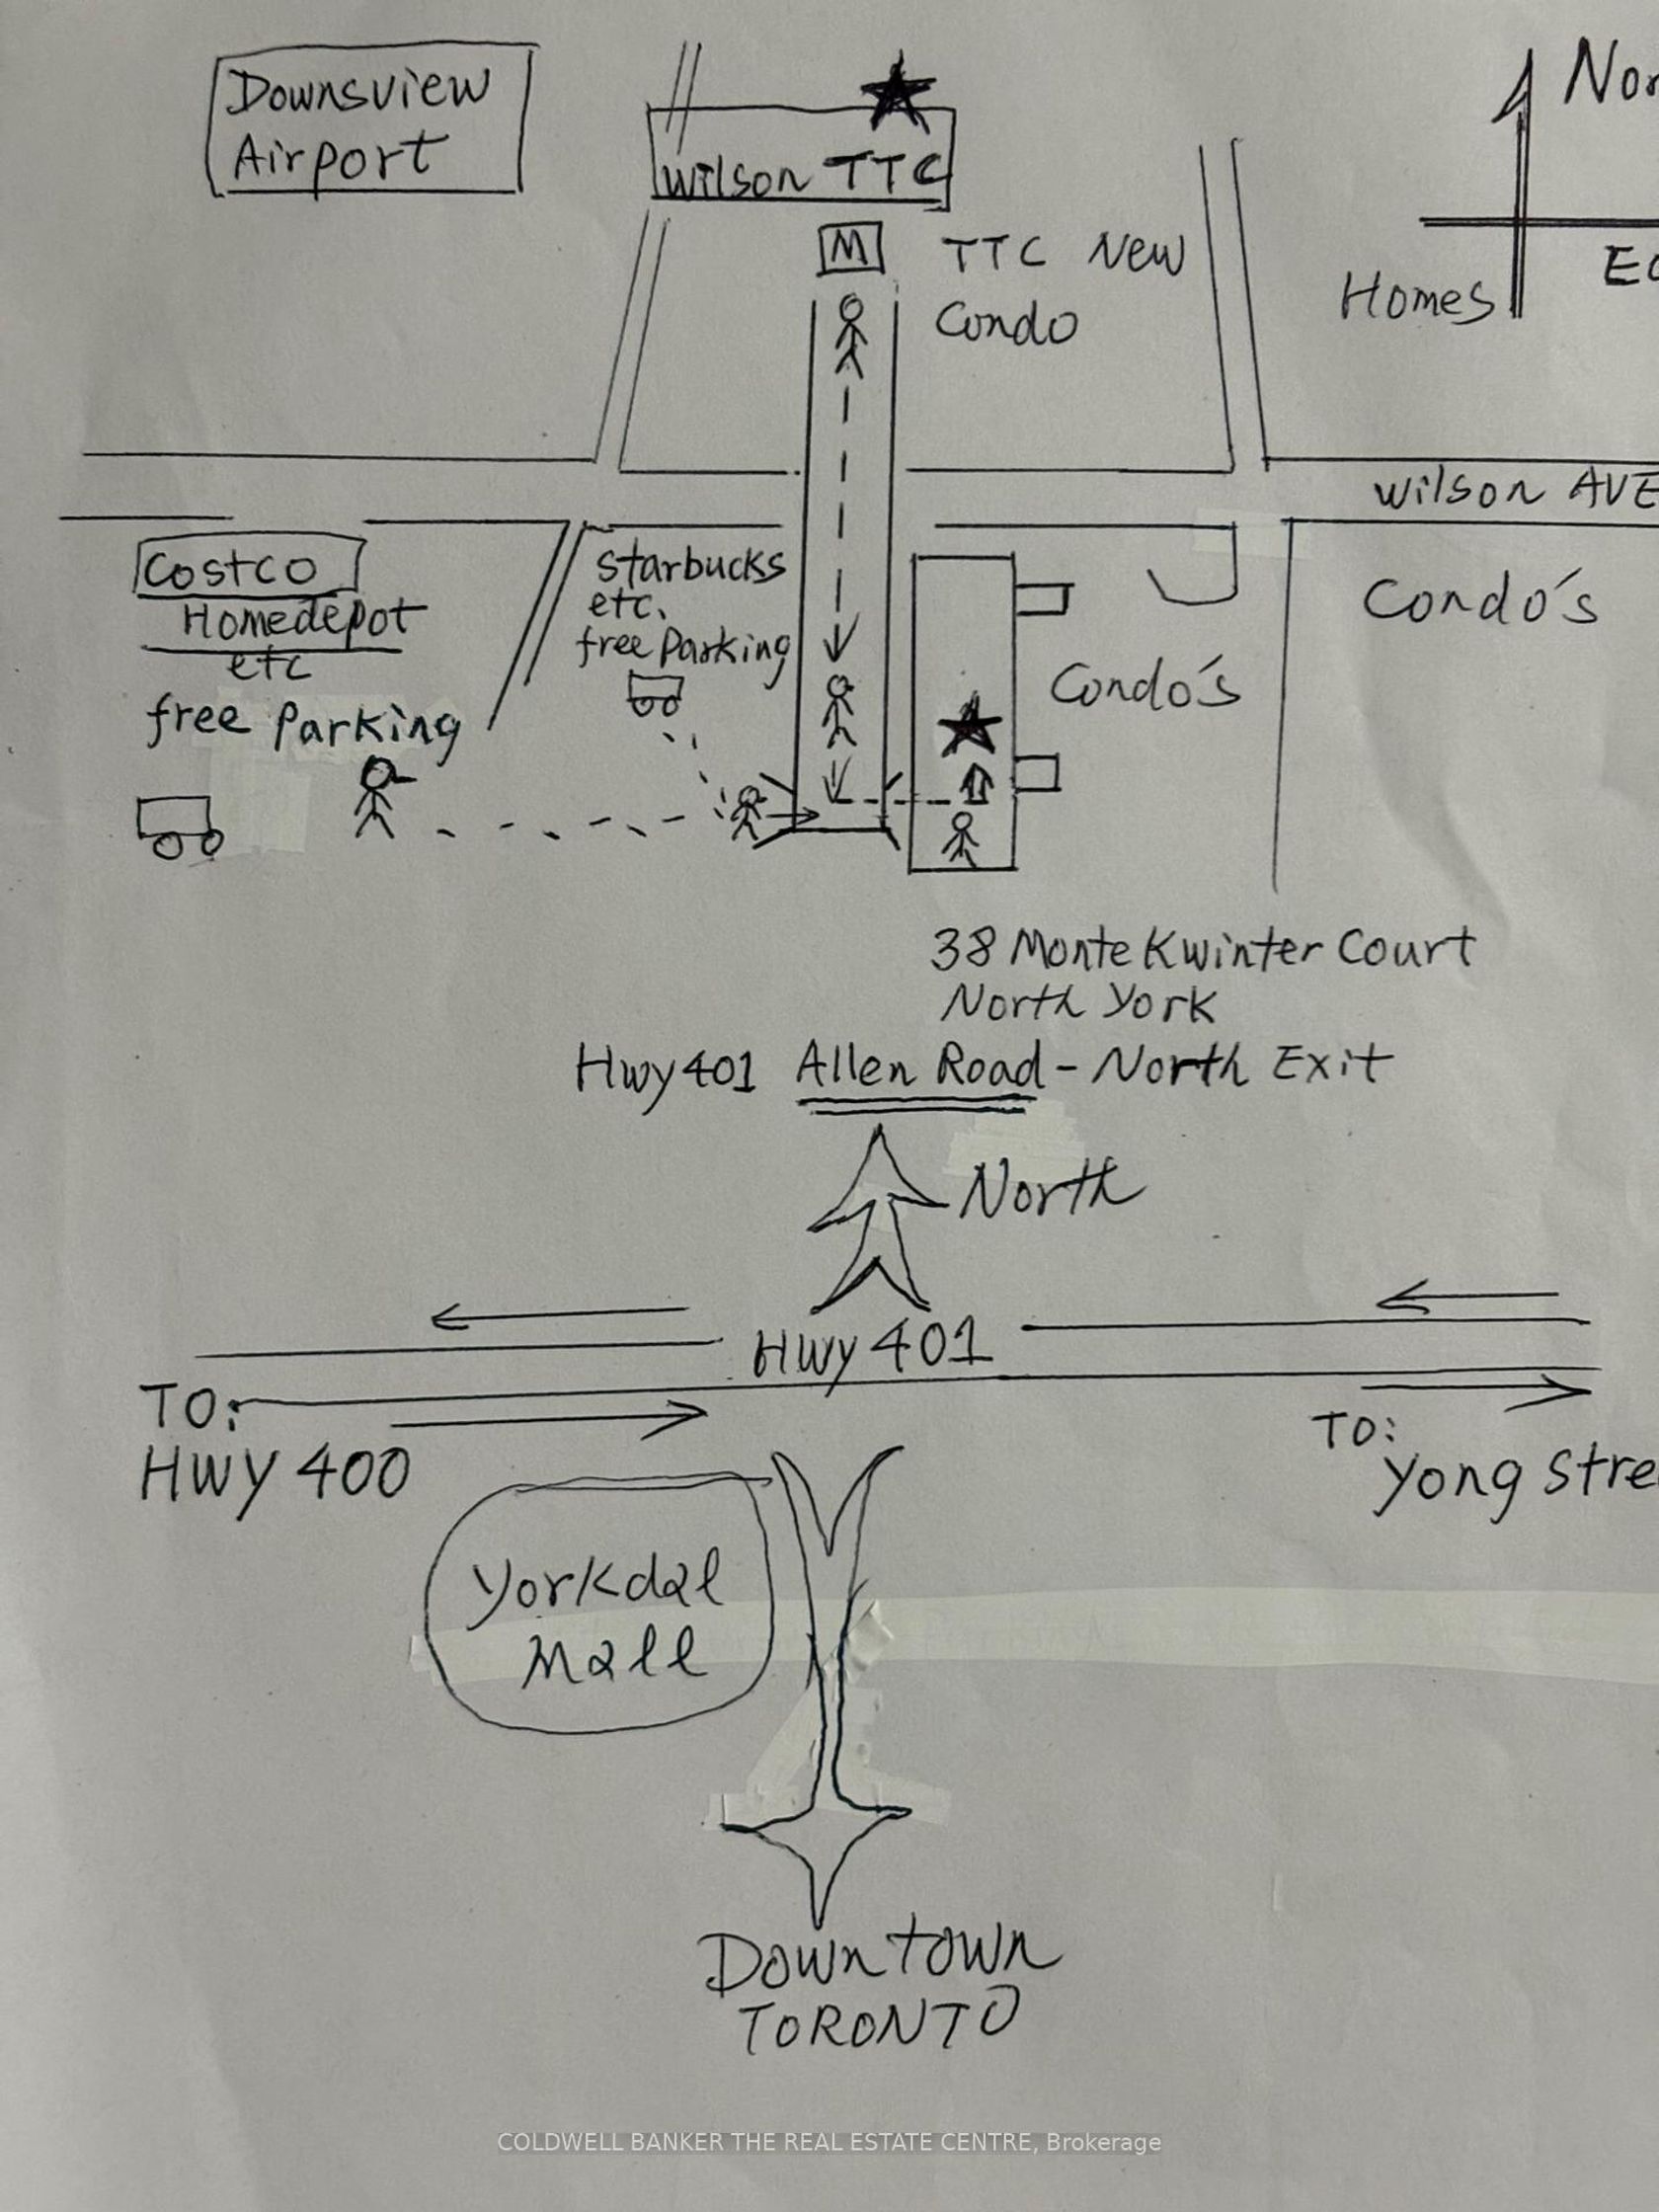 Downsview
Airport
Wilson TTC
Nor
M
TTC New
Condo
Homes
Ea
Wilson AVE
Costco
Homedepot
etc
free Parking
Starbucks
etc.
free Parking
Condo's
Condo's
38 Monte Kwinter Court
North York
Hwy 401 Allen Road - North Exit
North
Hwy 401
TO:
HWY 400
TO:
Yong Stre
Yorkdal
Mall
Downtown
TORONTO
COLDWELL BANKER THE REAL ESTATE CENTRE, Brokerage